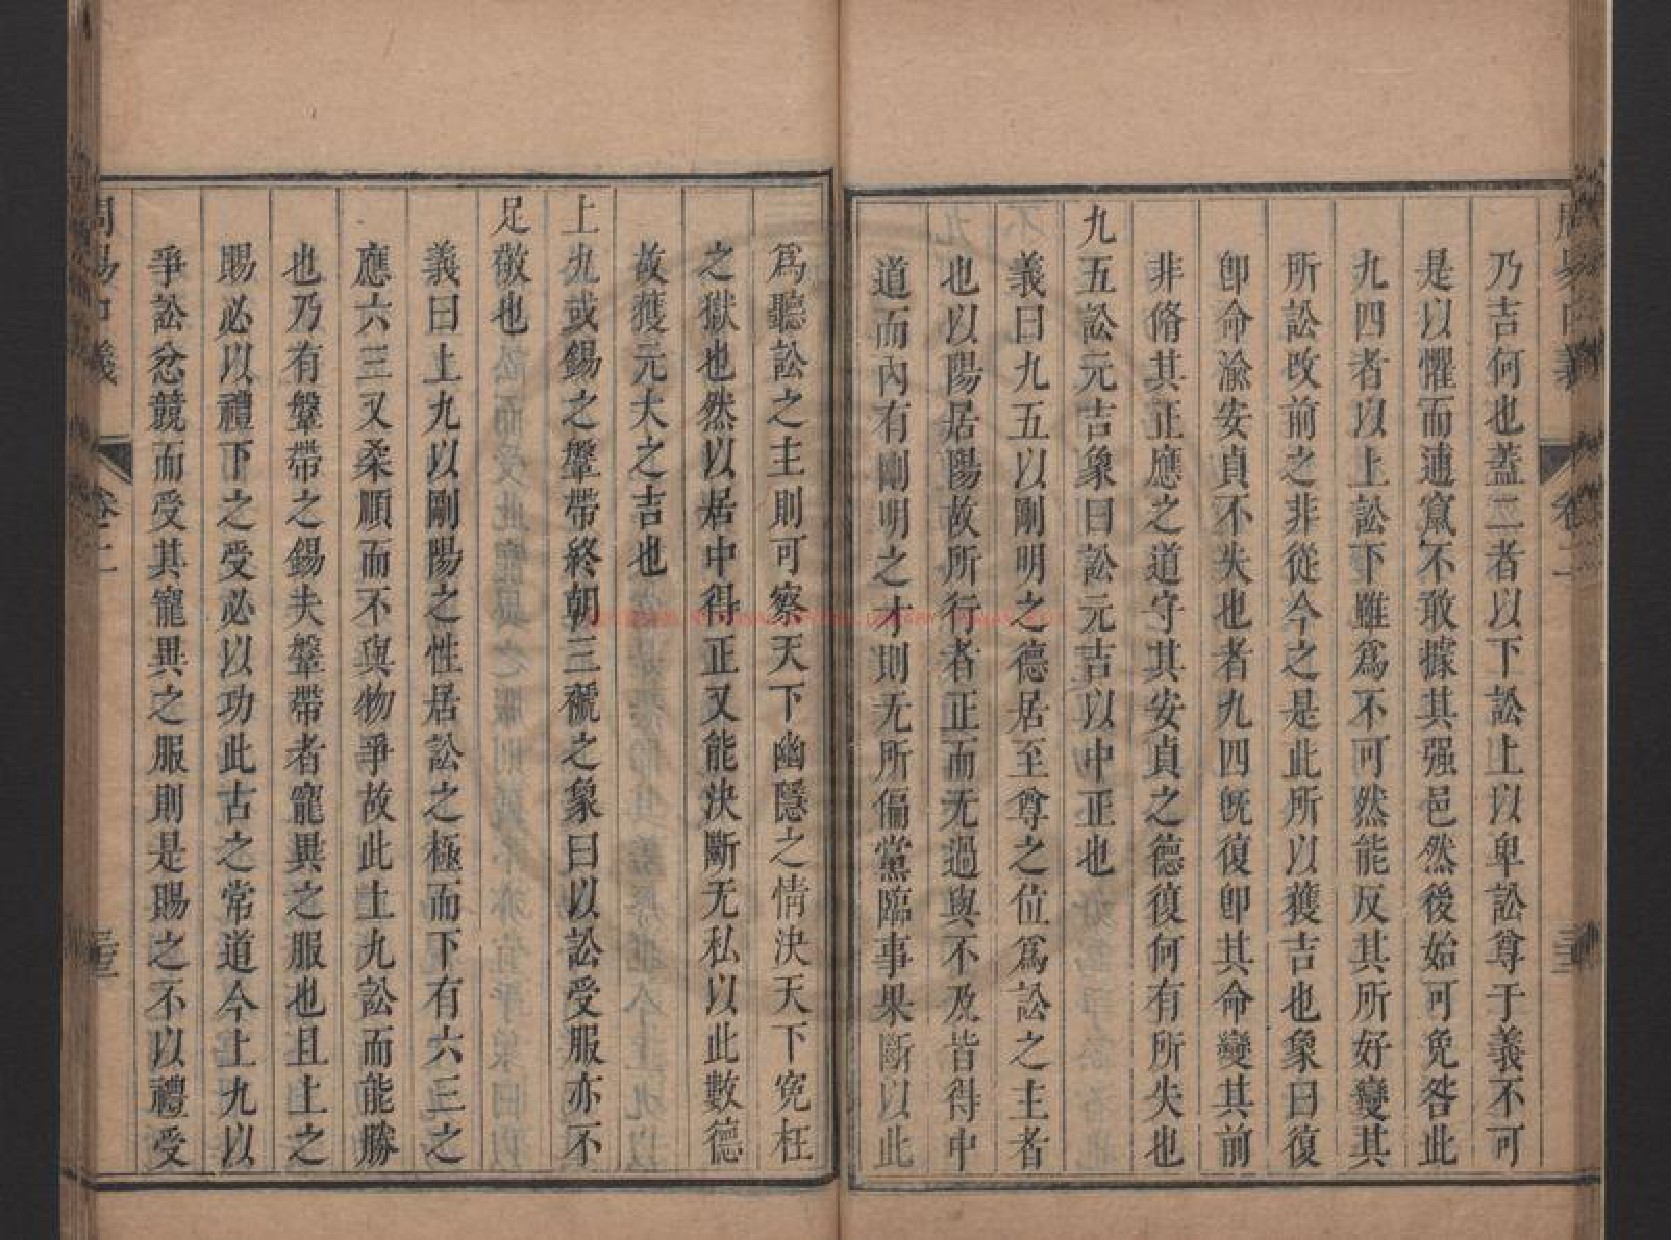 乃吉何也蓋二者以下訟上以卑訟尊于義不可
是以懼而逋竄不敢據其强邑然後始可免咎此
九四者以上訟下雖爲不可然能反其所好變其
所訟改前之非從今之是此所以獲吉也象曰復
卽命渝安貞不失也者九四旣復卽其命變其前
非脩其正應之道守其安貞之德復何有所失也
九五訟元吉象曰訟元吉以中正也
義曰九五以剛明之德居至尊之位爲訟之主者
也以陽居陽故所行者正而无過與不及皆得中
道而內有剛明之才則无所偏黨臨事果斷以此
爲聽訟之主則可察天下幽隱之情決天下寃枉
之獄也然以居中得正又能決斷无私以此數德
故獲元大之吉也
上九或錫之鞶帶終朝三褫之象曰以訟受服亦不
足敬也
義曰上九以剛陽之性居訟之極而下有六三之
應六三又柔順而不與物爭故此上九訟而能勝
也乃有鞶帶之錫夫鞶帶者寵異之服也且上之
賜必以禮下之受必以功此古之常道今上九以
爭訟忿競而受其寵異之服則是賜之不以禮受
周易口義